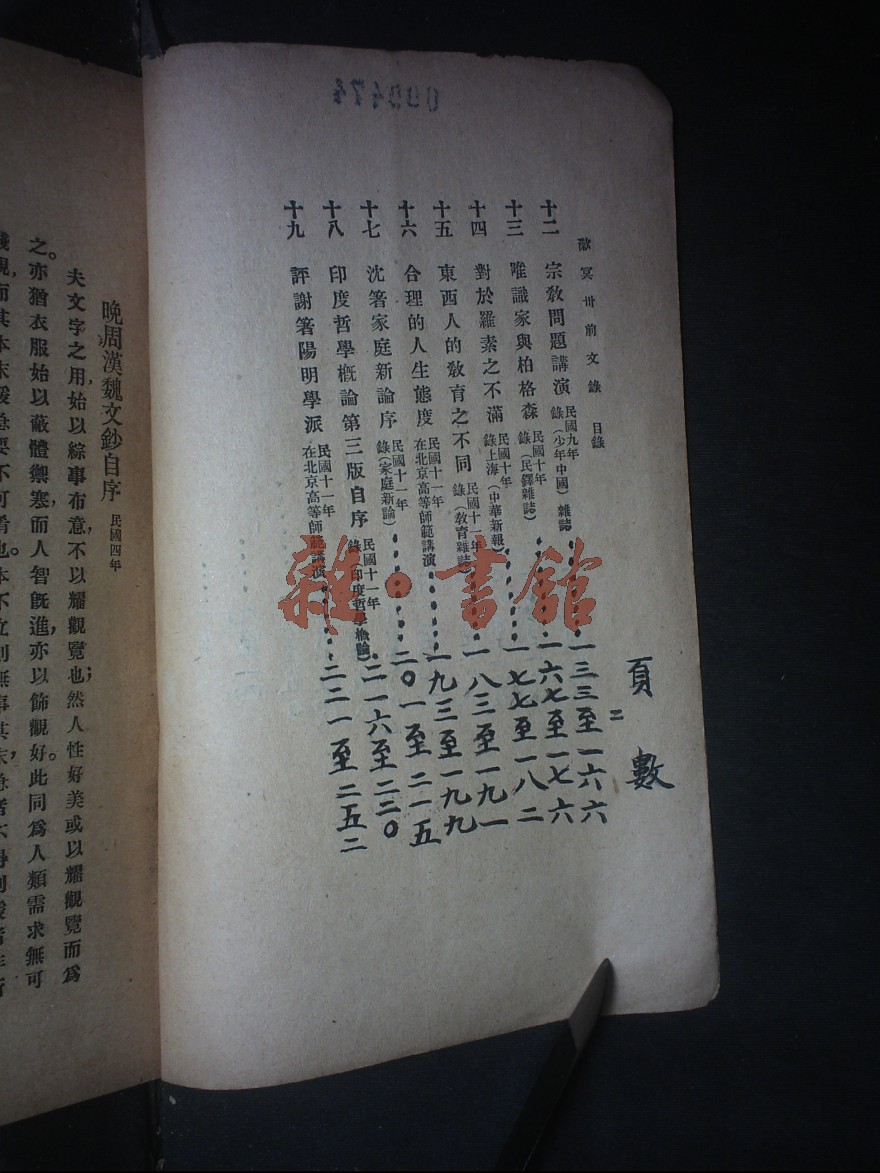 漱冥卅前文錄　目錄
二
頁數
十二　宗教問題講演　民國九年　錄（少年中國）雜誌……一三三至一六六
十三　唯識家與柏格森　民國十年　錄（民鐸雜誌）……一六七至一七六
十四　對於羅素之不滿　民國十年　錄上海（中華新報）……一七七至一八二
十五　東西人的教育之不同　民國十一年　錄（教育雜誌）……一八三至一九一
十六　合理的人生態度　民國十一年　在北京高等師範講演……一九三至一九九
十七　沈箸家庭新論序　民國十一年　錄（家庭新論）……二〇一至二一五
十八　印度哲學概論第三版自序　民國十一年　錄（印度哲學概論）……二一六至二二〇
十九　評謝箸陽明學派　民國十一年　在北京高等師範講演……二二一至二五二
晚周漢魏文鈔自序　民國四年
夫文字之用，始以綜事布意，不以耀觀覽也；然人性好美或以耀觀覽而爲
之。亦猶衣服始以蔽體禦寒，而人智旣進，亦以飾觀好。此同爲人類需求無可
000474
雜·書館